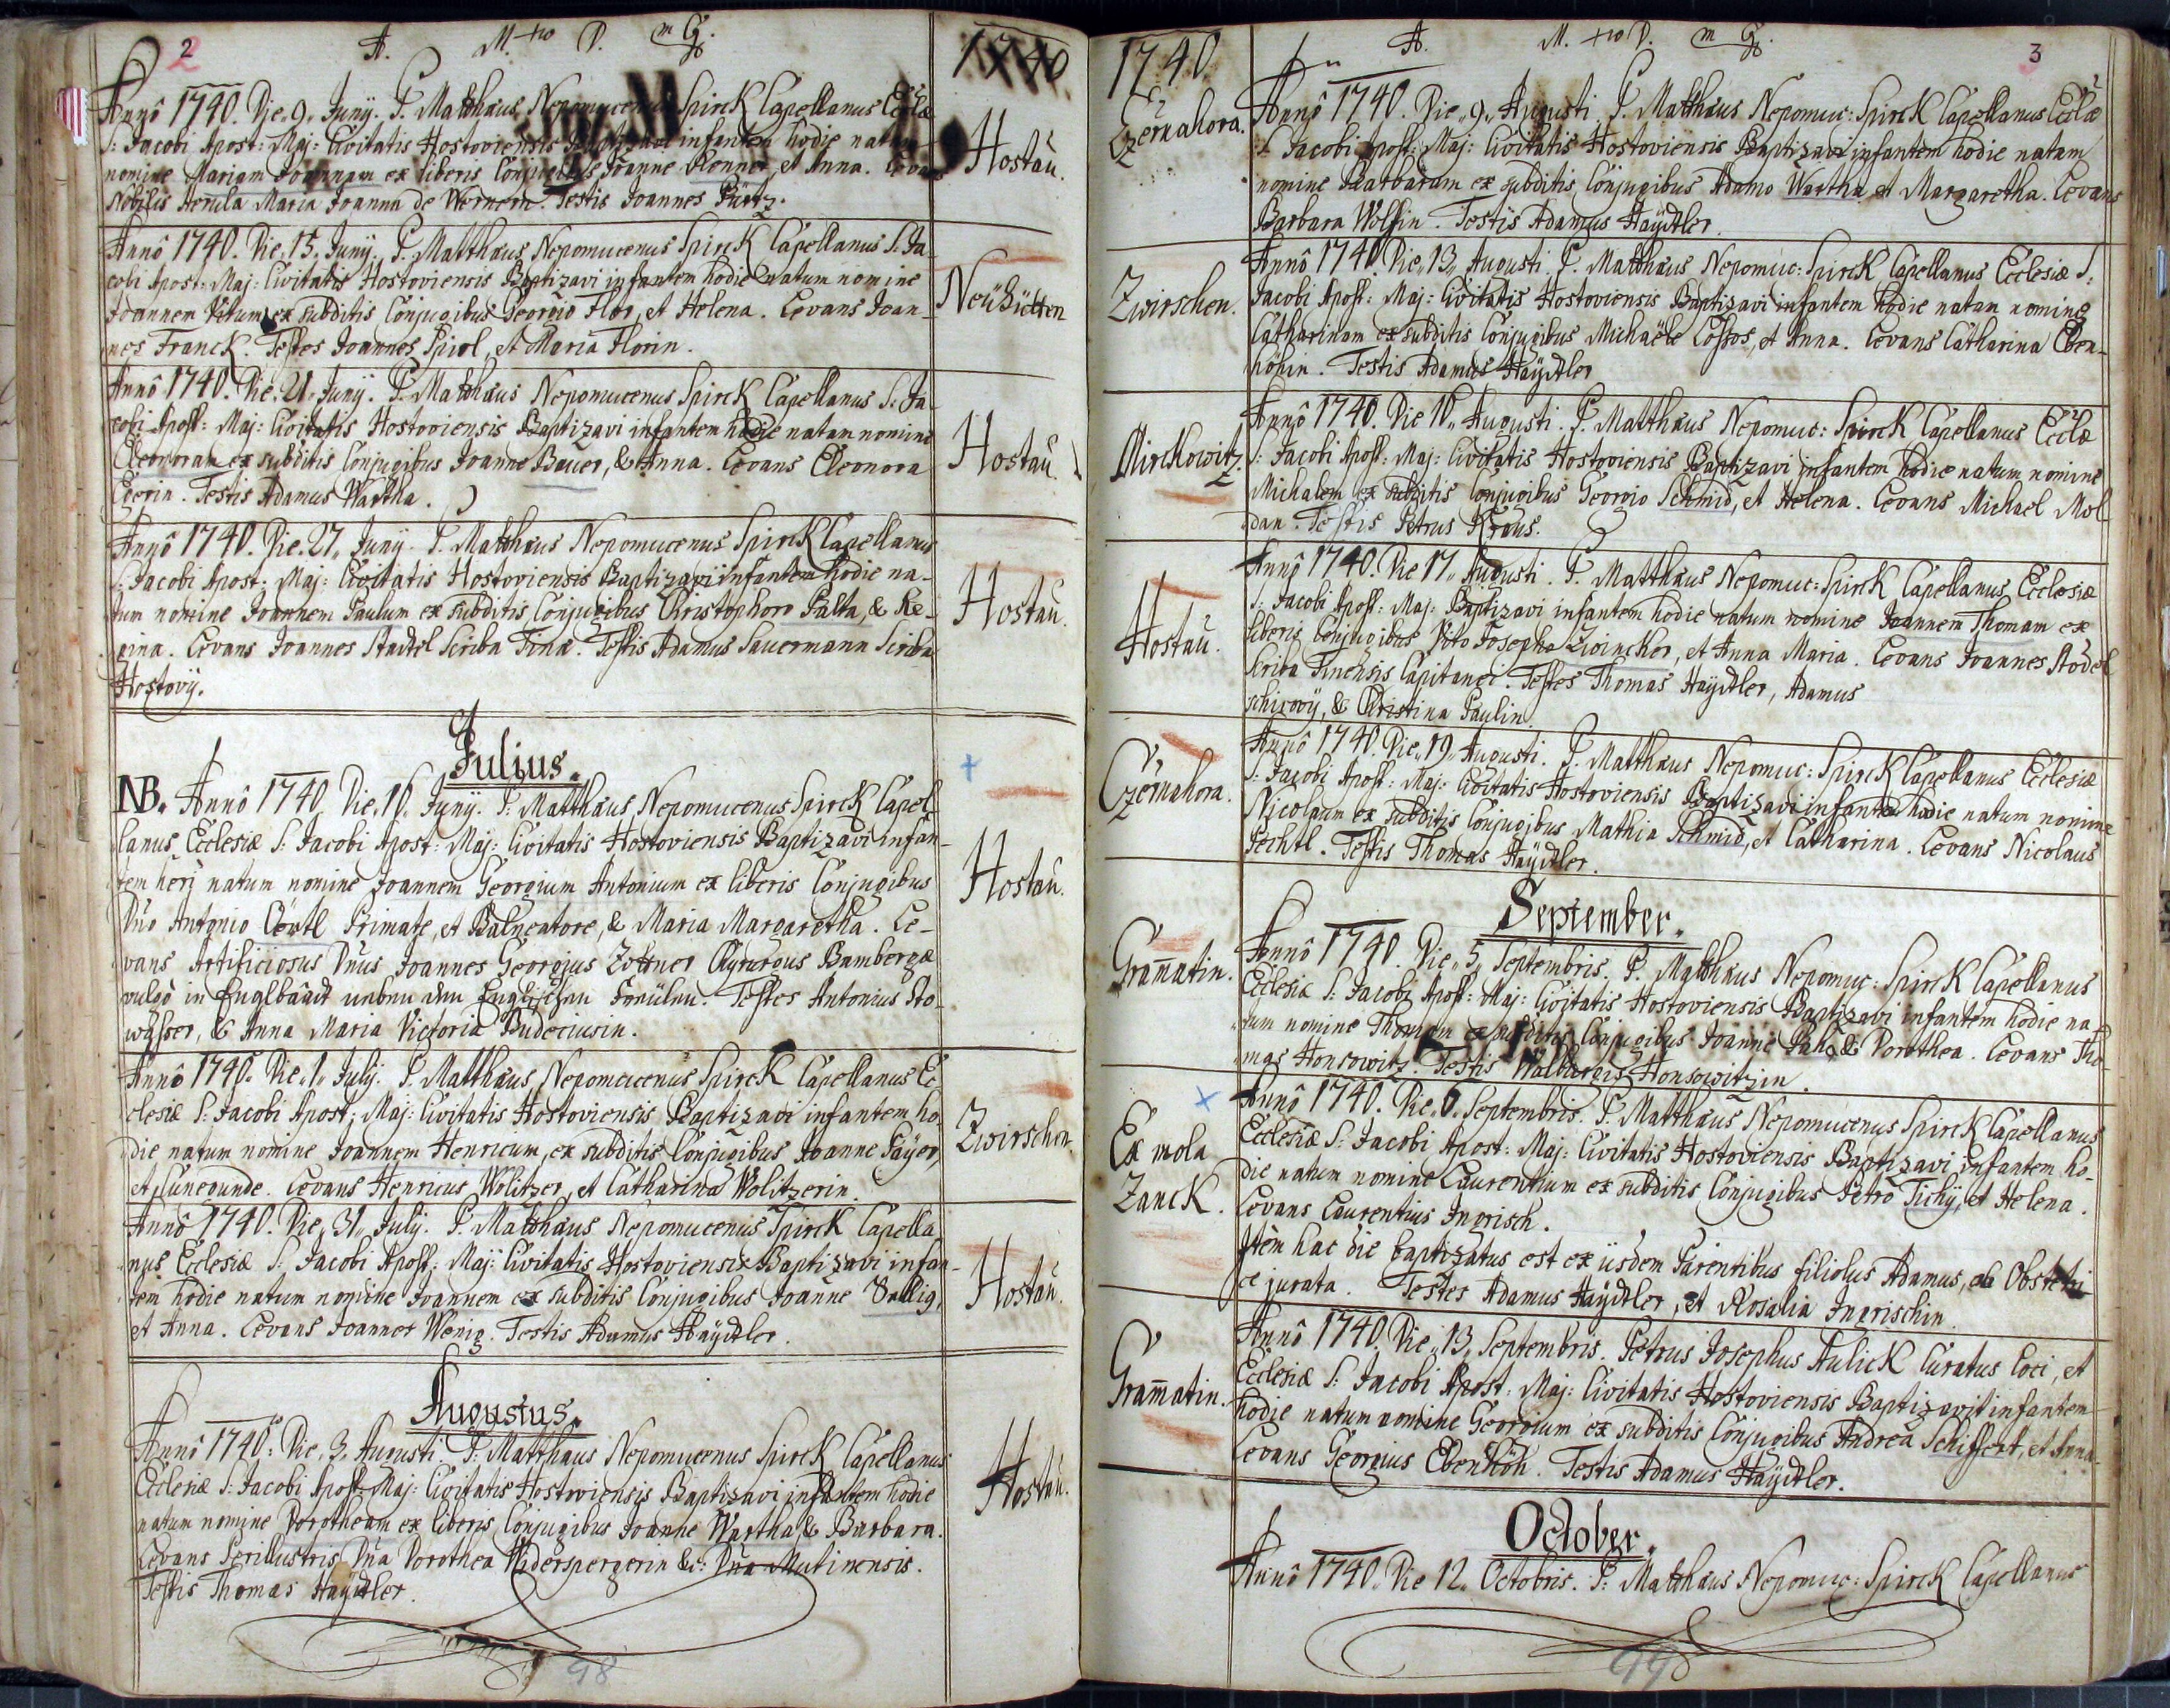 2
A. M. D. m G.
1740
Annô 1740. Die 9. Junÿ. P. Matthæus Nepomucenus Spirck Capellanus Eccłæ
S: Jacobi Apost: Maj: Civitatis Hostoviensis Baptizavi infantem hodie natam
nomine Mariam Joannam ex liberis Conjugibus Joanne Renner, et Anna. Levans
Nobilis Herula Maria Joanna de Wernern. Testis Joannes Pürtz.
Hostaŭ.
Annô 1740. Die 15. Junÿ. P. Matthæus Nepomucenus Spirck Capellanus S: Ja-
cobi Apost: Maj: Civitatis Hostoviensis Baptizavi infantem hodie natum nomine
Joannem Vitum ex subditis Conjugibus Georgio Flor, et Helena. Levans Joan-
nes Franck. Testes Joannes Spirl, et Maria Florin.
Neühütten
Annô 1740. Die 21. Junÿ. P. Matthæus Nepomucenus Spirck Capellanus S: Ja-
cobi Apost: Maj: Civitatis Hostoviensis Baptizavi infantem hodie natam nomine
Eleonoram ex subditis Conjugibus Joanne Bauer, & Anna. Levans Eleonora
Ederin. Testis Adamus Wartha.
Hostaŭ.
Annô 1740. Die 27. Junÿ. P. Matthæus Nepomucenus Spirck Capellanus
S: Jacobi Apost: Maj: Civitatis Hostoviensis Baptizavi infantem hodie na-
tum nomine Joannem Paulum ex subditis Conjugibus Christophoro Palta, & Re-
gina. Levans Joannes Stadtel Scriba Tinæ. Testis Adamus Sauermann Scriba
Hostovÿ.
Hostaŭ.
Julius.
NB. Annô 1740. Die 10. Junÿ. P. Matthæus Nepomucenus Spirck Capel-
lanus Ecclesiæ S: Jacobi Apost: Maj: Civitatis Hostoviensis Baptizavi infan-
tem heri natum nomine Joannem Georgium Antonium ex liberis Conjugibus
Dño Antonio Cörtl Primate, et Balneatore, & Maria Margaretha. Le-
vans Artificiosus Dñus Joannes Georgius Zottner Chyrurgus Bambergæ
vulgò in Englbaadt neben den Englischen Freülen. Testes Antonius Ro-
wasser, & Anna Maria Victoria Budeciusin.
Hostaŭ.
Annô 1740. Die 1. Julÿ. P. Matthæus Nepomucenus Spirck Capellanus Ec-
clesiæ S: Jacobi Apost: Maj: Civitatis Hostoviensis Baptizavi infantem ho-
die natum nomine Joannem Henricum, ex subditis Conjugibus Joanne Payer,
et Cunegunde. Levans Henricus Wolitzer, et Catharina Wolitzerin.
Zwirschen.
Annô 1740. Die 31. Julÿ. P. Matthæus Nepomucenus Spirck Capella-
nus Ecclesiæ S: Jacobi Apost: Maj: Civitatis Hostoviensis Baptizavi infan-
tem hodie natum nomine Joannem ex subditis Conjugibus Joanne Sallig,
et Anna. Levans Joannes Wenig. Testis Adamus Haÿdtler.
Hostaŭ.
Augustus.
Annô 1740. Die 3. Augusti. P. Matthæus Nepomucenus Spirck Capellanus
Ecclesiæ S: Jacobi Apost: Maj: Civitatis Hostoviensis Baptizavi infantem hodie
natam nomine Dorotheam ex liberis Conjugibus Joanne Wartha & Barbara.
Levans Perillustris Dña Dorothea Widerspergerin &c: Dña Mutinensis.
Testis Thomas Haÿdtler.
Hostaŭ.
98
1740
A. M. D. m G.
3
Czernahora.
Annô 1740. Die 9. Augusti. P. Matthæus Nepomuc: Spirck Capellanus Eccłæ
S: Jacobi Apost: Maj: Civitatis Hostoviensis Baptizavi infantem hodie natam
nomine Barbaram ex subditis Conjugibus Adamo Wartha, et Margaretha. Levans
Barbara Wolfin. Testis Adamus Haÿdtler.
Zwirschen.
Annô 1740. Die 13. Augusti. P. Matthæus Nepomuc: Spirck Capellanus Ecclesiæ S:
Jacobi Apost: Maj: Civitatis Hostoviensis Baptizavi infantem hodie natam nomine
Catharinam ex subditis Conjugibus Michaële Cossos, et Anna. Levans Catharina Eben-
höhin. Testis Adamus Haÿdtler
Mirckowitz.
Annô 1740. Die 10. Augusti. P. Matthæus Nepomuc: Spirck Capellanus Eccłæ
S: Jacobi Apost: Maj: Civitatis Hostoviensis Baptizavi infantem hodie natum nomine
Michaëlem ex subditis Conjugibus Georgio Schmid, et Helena. Levans Michael Mol-
dan. Testis Petrus Kraus.
Hostaŭ.
Annô 1740. Die 17. Augusti. P. Matthæus Nepomuc: Spirck Capellanus Ecclesiæ
S: Jacobi Apost: Maj: Baptizavi infantem hodie natum nomine Joannem Thomam ex
liberis Conjugibus Vito Josepho Zwincker, et Anna Maria. Levans Joannes Stodel
Scriba Tinensis Capitanei. Testes Thomas Haÿdtler, Adamus
schirovÿ, & Christina Paulin.
Czernahora.
Annô 1740. Die 19. Augusti. P. Matthæus Nepomuc: Spirck Capellanus Ecclesiæ
S: Jacobi Apost: Maj: Civitatis Hostoviensis Baptizavi infantem hodie natum nomine
Nicolaum ex subditis Conjugibus Mathia Schmid, et Catharina. Levans Nicolaus
Pechtl. Testis Thomas Haÿdtler.
September.
Gram̄atin.
Annô 1740. Die 5. Septembris. P. Matthæus Nepomuc: Spirck Capellanus
Ecclesiæ S: Jacobi Apost: Maj: Civitatis Hostoviensis Baptizavi infantem hodie na-
tum nomine Thomam ex subditis Conjugibus Joanne & Dorothea. Levans Tho-
mas Honsowitz. Testis Walburgis Honsowitzin.
Ex mola
Zanck.
Annô 1740. Die 6. Septembris. P. Matthæus Nepomucenus Spirck Capellanus
Ecclesiæ S: Jacobi Apost: Maj: Civitatis Hostoviensis Baptizavi infantem ho-
die natum nomine Laurentium ex subditis Conjugibus Petro Tichÿ, et Helena.
Levans Laurentius Ingrisch.
Item hac die baptizatus est ex iisdem Parentibus filiolus Adamus, ab Obstetri-
ce jurata. Testes Adamus Haÿdtler, et Rosalia Ingrischin.
Gram̄atin.
Annô 1740. Die 13. Septembris. Petrus Josephus Aulick Curatus Loci, et
Ecclesiæ S: Jacobi Apost: Maj: Civitatis Hostoviensis Baptizavit infantem
hodie natum nomine Georgium ex subditis Conjugibus Andrea Schiffert, et Anna.
Levans Georgius Ebenhöh. Testis Adamus Haÿdtler.
October.
Annô 1740. Die 12. Octobris. P: Matthæus Nepomuc: Spirck Capellanus
99